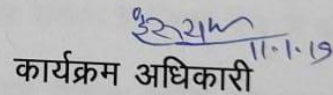 11.1.19
कार्यक्रम अधिकारी